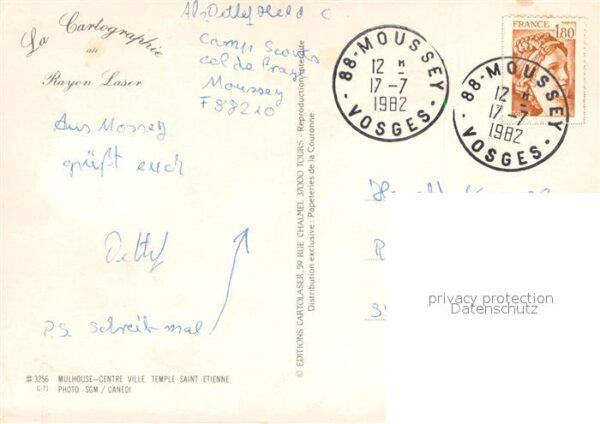 La Cartographie
au
Rayon Laser
Camp Scouts
Moussey
F 88210
Aus Mossey
grüßt euch
Detlef
P.S. Schreib mal
#3256 MULHOUSE—CENTRE VILLE. TEMPLE SAINT ETIENNE
C-71 PHOTO SGM / CANEDI
© EDITIONS CARTOLASER, 59 RUE CHALMEL 37000 TOURS - Reproduction interdite
Distribution exclusive : Papeteries de la Couronne
88-MOUSSEY
12 H
17-7
1982
VOSGES
FRANCE
1,80
88-MOUSSEY
12 H
17-7
1982
VOSGES
privacy protection
Datenschutz